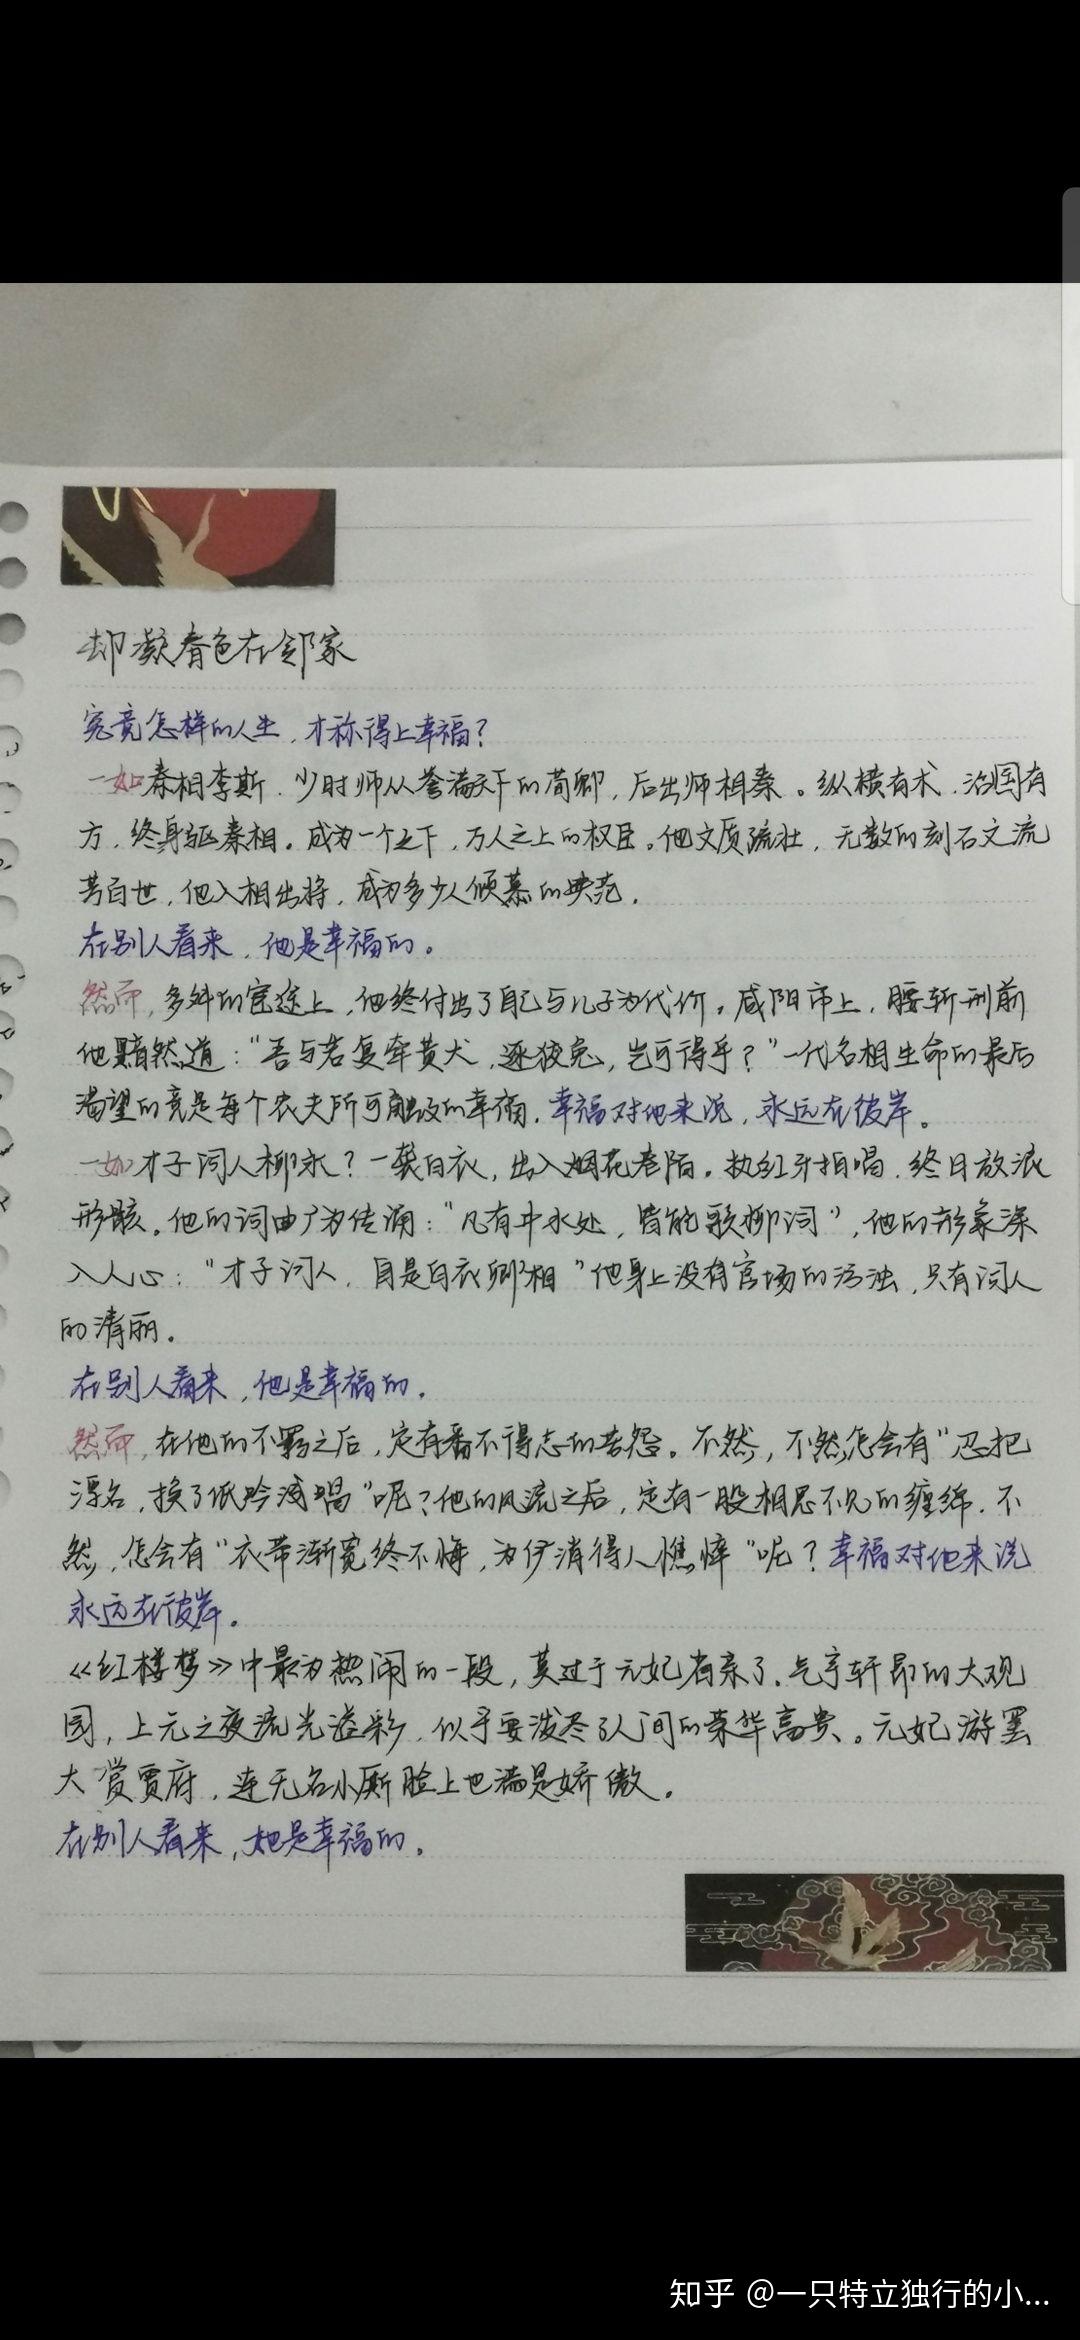 却凝春色在邻家
究竟怎样的人生，才称得上幸福？
一如秦相李斯，少时师从誉满天下的荀卿，后出师相秦。纵横有术，治国有
方，终身驱秦相。成为一个之下，万人之上的权臣。他文质疏壮，无数的刻石文流
芳百世，他入相出将，成为多少人倾慕的典范。
在别人看来，他是幸福的。
然而，多舛的宦途上，他终付出了自己与儿子为代价。咸阳市上，腰斩刑前
他黯然道："吾与若复牵黄犬，逐狡兔，岂可得乎？"一代名相生命的最后
渴望的竟是每个农夫所可触及的幸福，幸福对他来说，永远在彼岸。
一如才子词人柳永？一袭白衣，出入烟花巷陌。执红牙拍唱，终日放浪
形骸。他的词曲广为传诵："凡有井水处，皆能歌柳词"，他的形象深
入人心："才子词人，自是白衣卿相"他身上没有官场的污浊，只有词人
的清丽。
在别人看来，他是幸福的。
然而，在他的不羁之后，定有番不得志的苦怨。不然，不然怎会有"忍把
浮名，换了低吟浅唱"呢？他的风流之后，定有一股相思不见的缠绵，不
然，怎会有"衣带渐宽终不悔，为伊消得人憔悴"呢？幸福对他来说
永远在彼岸。
《红楼梦》中最为热闹的一段，莫过于元妃省亲了。气宇轩昂的大观
园，上元之夜流光溢彩，似乎要泼尽了人间的荣华高贵。元妃游罢
大赏贾府，连无名小厮脸上也满是娇傲。
在别人看来，她是幸福的。
知乎 @一只特立独行的小...